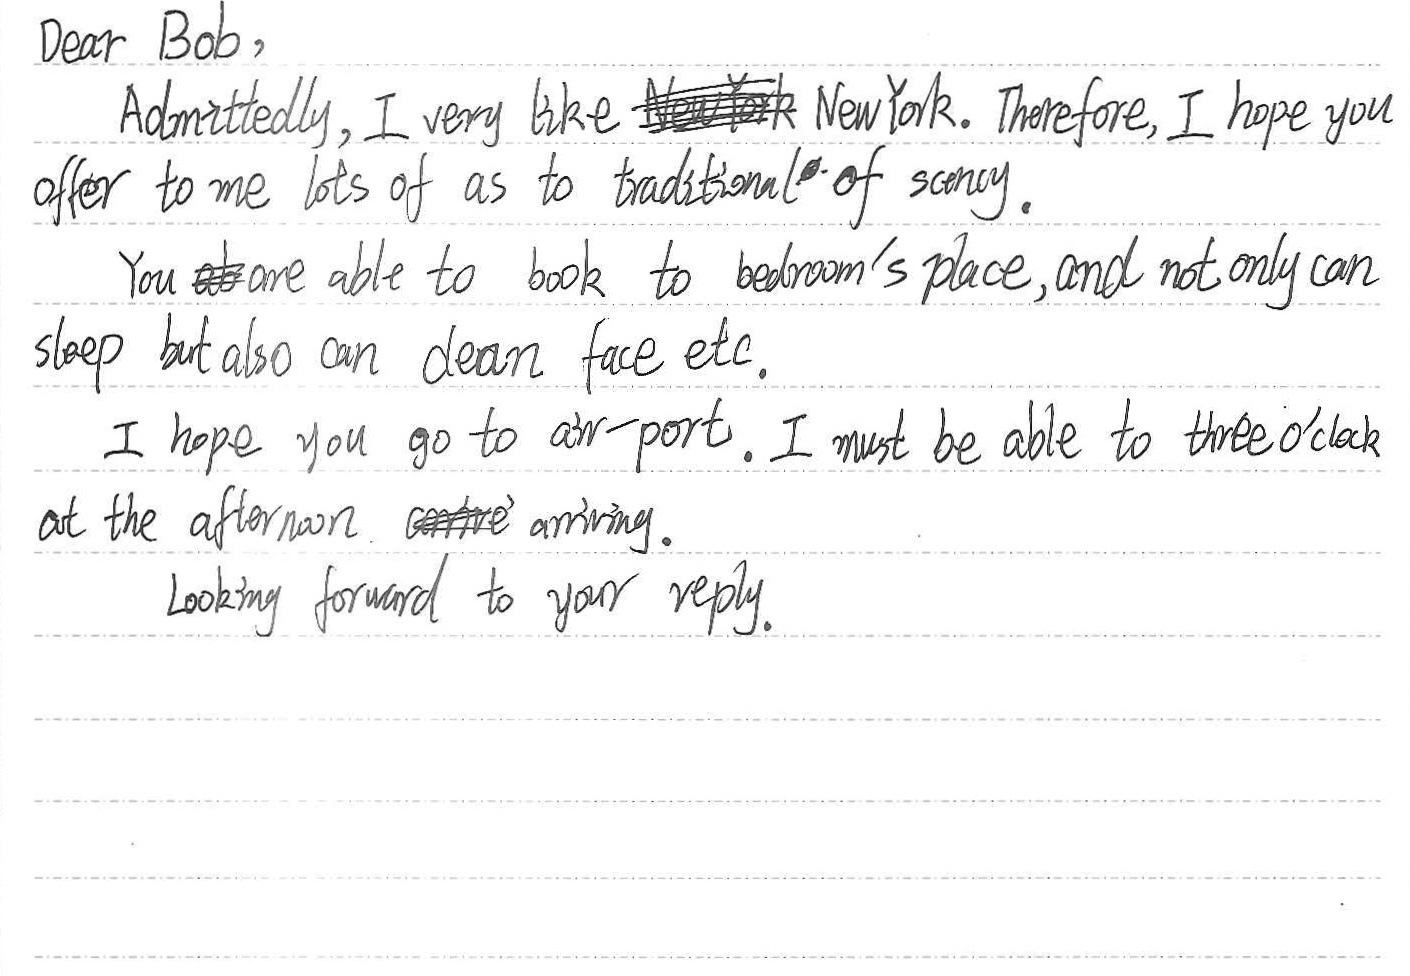 Dear Bob,
Admittedly, I very like New York. Therefore, I hope you
offer to me lots of as to traditional of scency.
You are able to book to bedroom's place, and not only can
sleep but also can clean face etc.
I hope you go to air-port. I must be able to three o'clock
at the afternoon arriving.
Looking forward to your reply.